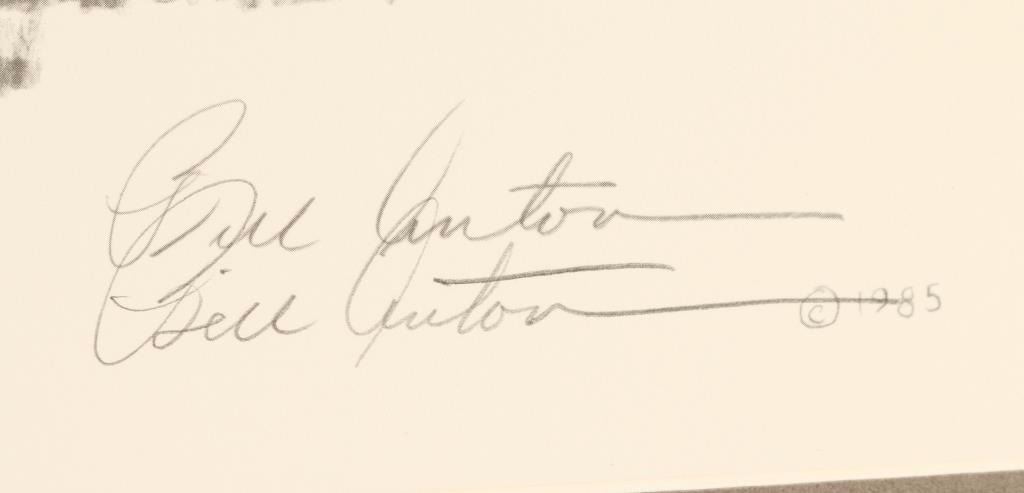 Bill Anton
Bill Anton © 1985